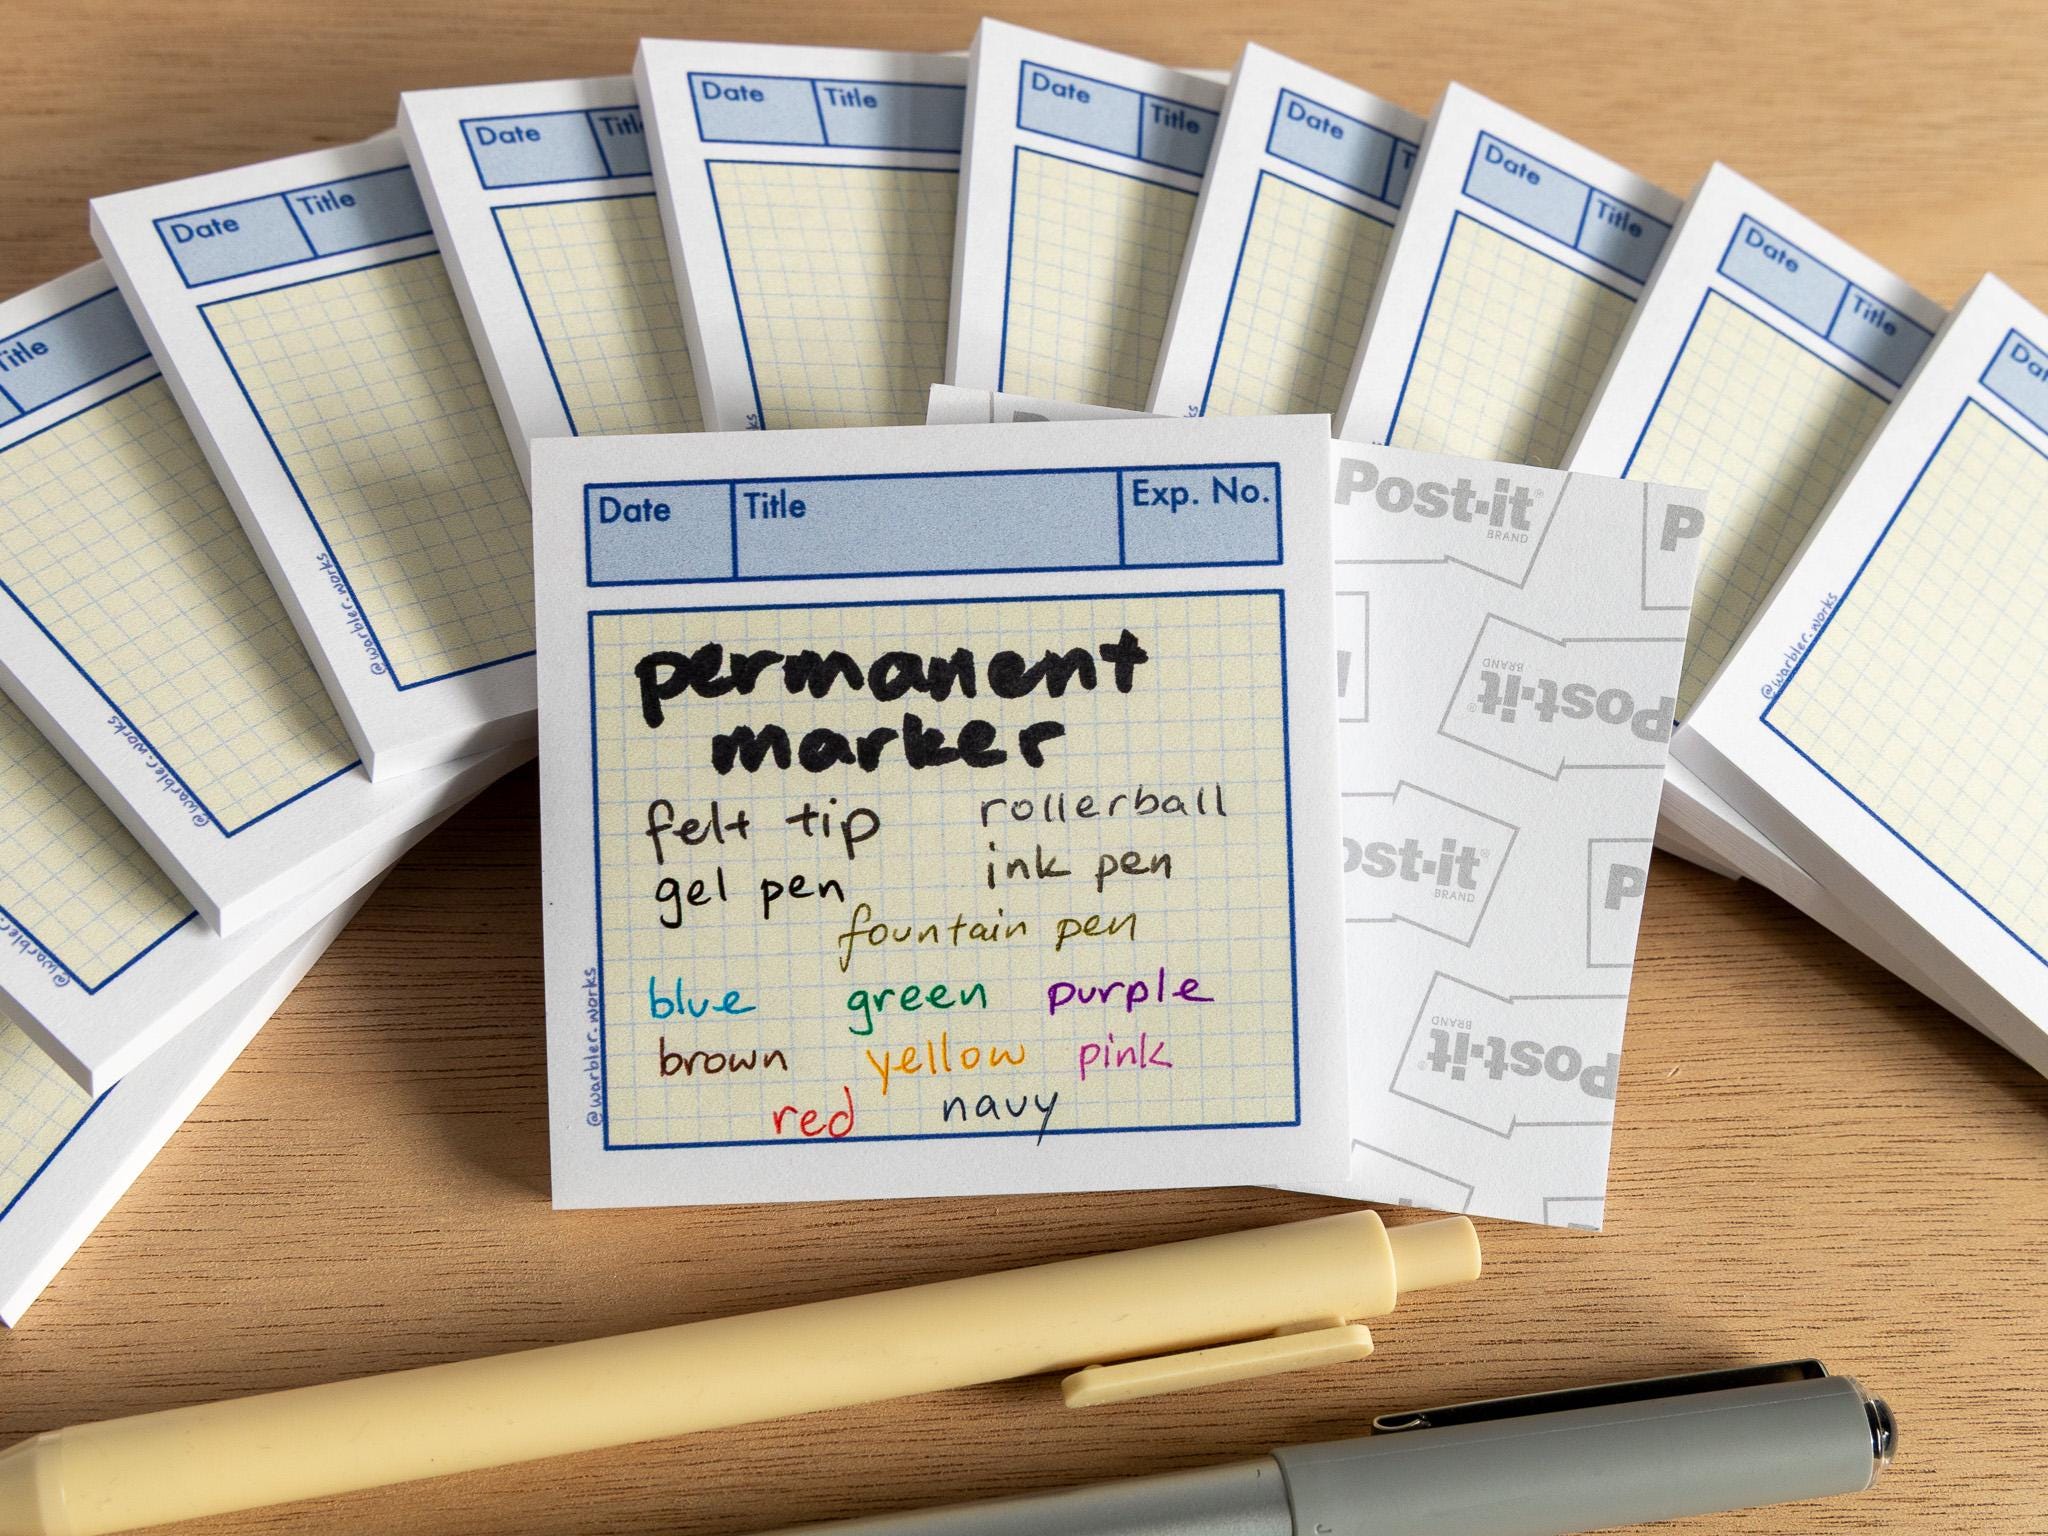 Date Title
Date Title
Date Title
Date Title
Date
Date Title
Date Title
Title
@warbler.works
@warbler.works
@warbler.works
Date Title Exp. No.
permanent
marker
felt tip rollerball
gel pen ink pen
fountain pen
blue green purple
brown yellow pink
red navy
@warbler.works
Post-it®
BRAND
Post-it®
BRAND
Post-it®
BRAND